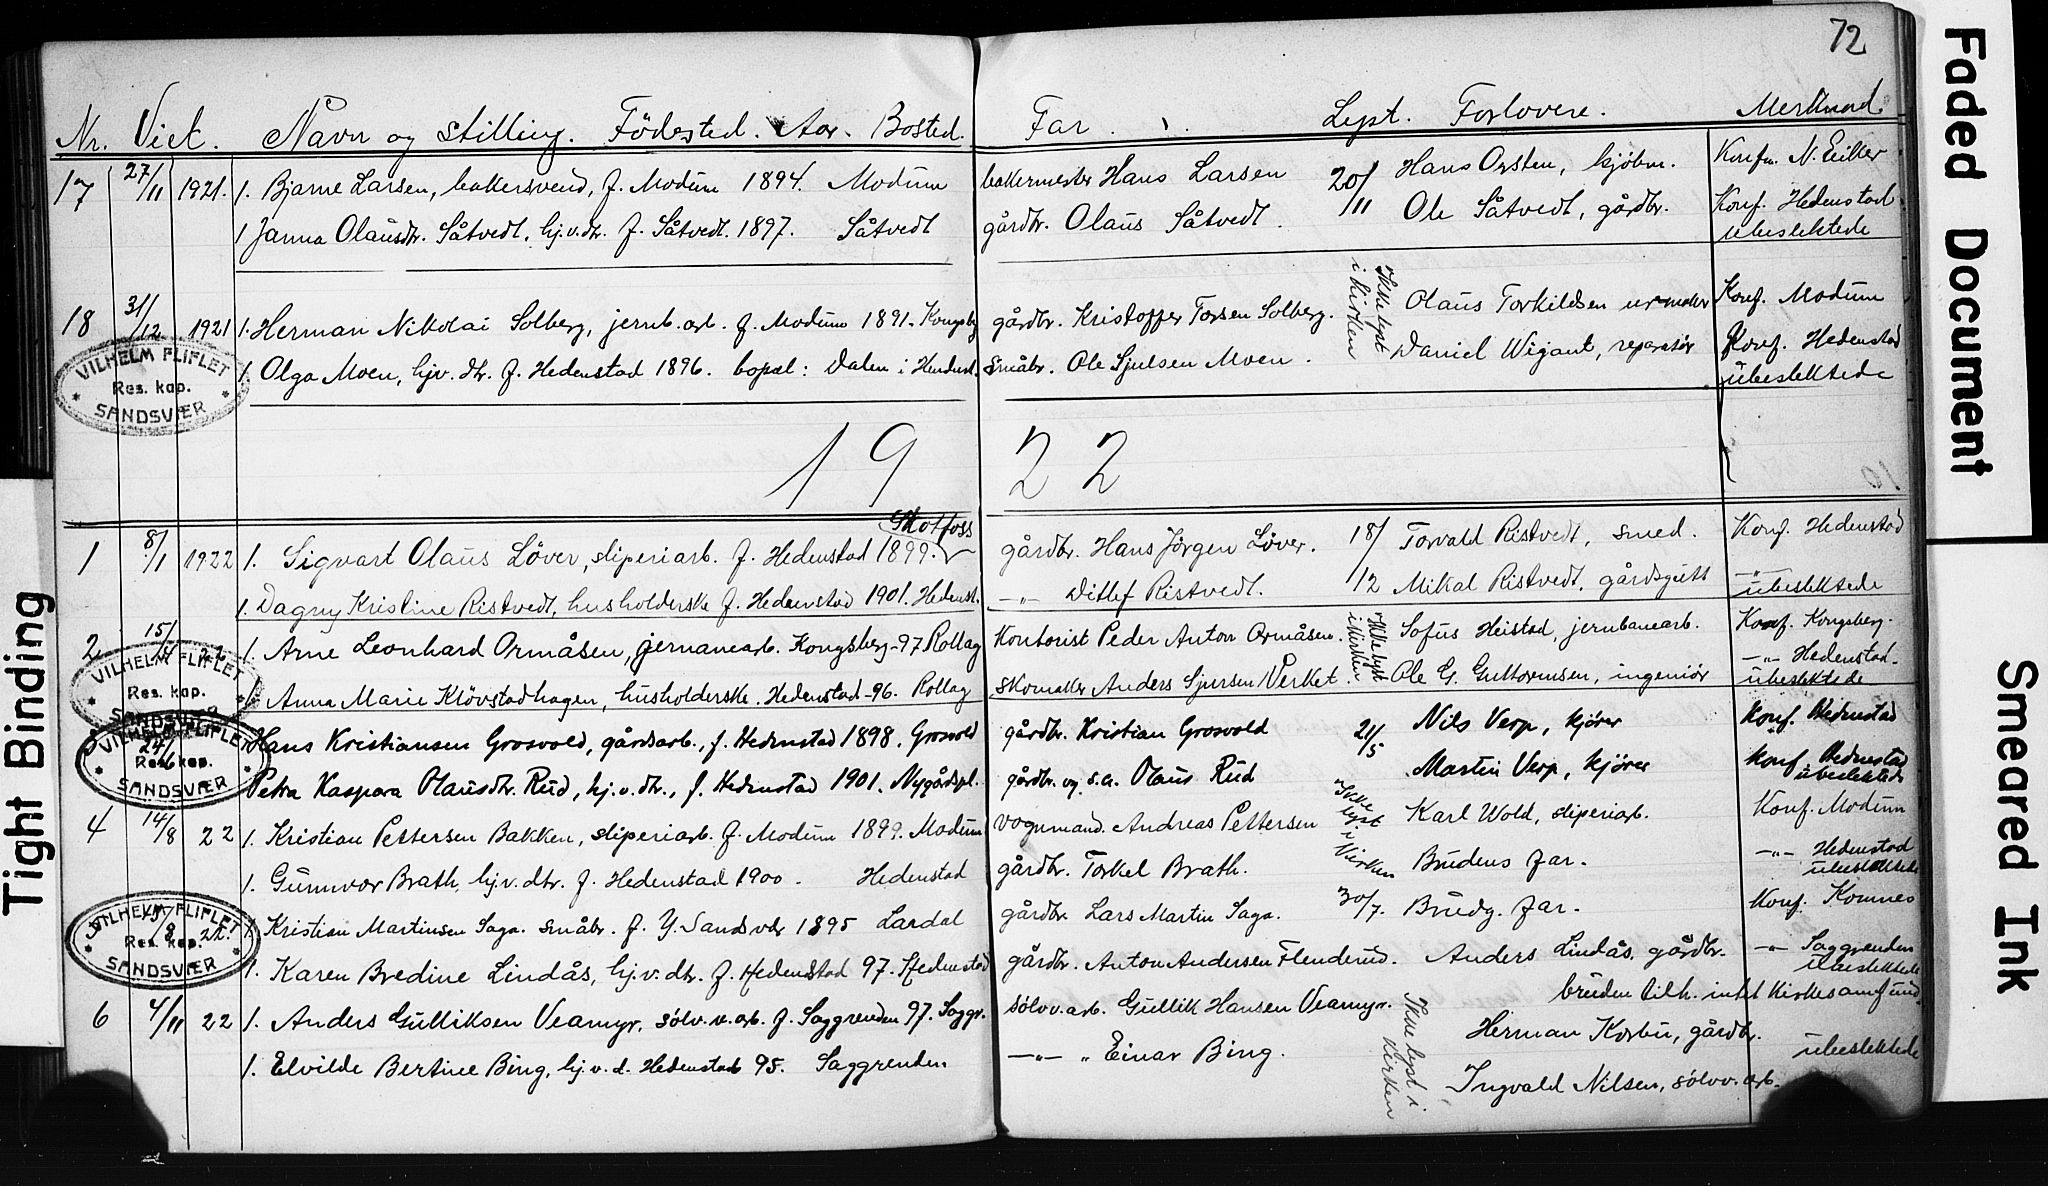 72
Nr. Viet. Navn og stilling. Födested. Aar. Bosted. Far. Lyst. Forlovere. Merknad
17 27/11 1921. 1. Bjarne Larsen, bakersvend, f. Modum 1894. Modum bakermester Hans Larsen 20/11 Hans Orsten, kjöbm. Konf. N. Eiker
1 Janna Olausdtr. Såtvedt, hj.v.dtr. f. Såtvedt. 1897. Såtvedt gårdbr. Olaus Såtvedt. Ole Såtvedt, gårdbr. Konf. Hedenstad
ubeslektede
18 31/12 1921 1. Herman Nikolai Solberg, jernb.arb. f. Modum 1891. Kongsbg gårdbr. Kristoffer Torsen Solberg. Ikke lyst i kirken Olaus Torkildsen urmaker Konf. Modum
1. Olga Moen, hjv. dtr. f. Hedenstad 1896. bopæl: Dalen i Hendenst. Småbr. Ole Sjulsen Moen. Daniel Wigant, reparatör Konf. Hedenstad
ubeslektede
VILHELM FLIFLET
Res. kap.
SANDSVÆR
1922
Skotfoss
1 8/1 1922 1. Sigvart Olaus Löver, sliperiarb. f. Hedenstad 1899. gårdbr. Hans Jörgen Löver. 18/12 Torvald Ristvedt, smed. Konf. Hedenstad
1. Dagny Kristine Ristvedt, husholderske f. Hedenstad 1901. Hedenst. -"- Ditlef Ristvedt. Mikal Ristvedt, gårdsgutt -"-
ubeslektede
2 15/ 22 1. Arne Leonhard Ormåsen, jernanearb. Kongsberg-97 Rollag Kontorist Peder Anton Ormåsen. Ikke lyst i kirken Sofus Heistad, jernbanearb. Konf. Kongsberg.
1. Anna Marie Klövstadhagen, husholderske. Hedenstad-96. Rollag Skomaker Anders Sjursen/Verket Ole G. Guttormsen, ingeniör -"- Hedenstad-
ubeslektede
VILHELM FLIFLET
Res. kap.
SANDSVÆR
24/6 Hans Kristiansen Grosvold, gårdsarb., f. Hedenstad 1898. Grosvold gårdbr. Kristian Grosvold 21/5 Nils Verp, kjörer Konf. Hedenstad
Petra Kaspara Olausdtr. Rud, hj.v.dtr., f. Hedenstad 1901. Nygårdspl. gårdbr. og s.a. Olaus Rud Martin Verp, kjörer konf. Hedenstad
ubeslektede
VILHELM FLIFLET
Res. kap.
SANDSVÆR
4 14/8 22 1. Kristian Pettersen Bakken, sliperiarb. f. Modum 1899. Modum vognmand. Andreas Pettersen Ikke lyst i kirken Karl Wold, sliperiarb. Konf. Modum
1. Gunnvor Brath, hj.v.dtr. f. Hedenstad 1900. Hedenstad gårdbr. Torkel Brath. Brudens far. -"- Hedenstad
ubeslektede
5 /8 22. 1. Kristian Martinsen Saga. småbr. f. Y. Sandsvær 1895 Lardal gårdbr. Lars Martin Saga. 30/7. Brudg. far. Konf. Komnes
1. Karen Bredine Lindås, hj.v.dtr. f. Hedenstad 97. Hedenstad gårdbr. Anton Andersen Flenderud. Anders Lindås, gårdbr. -"- Saggrenden
ubeslektede
VILHELM FLIFLET
Res. kap.
SANDSVÆR
bruden tilh. intet kirkesamfund.
6 4/11 22 1. Anders Gulliksen Veamyr, sölv.v.arb. f. Saggrenden 97. Saggr. sölvv.arb. Gullik Hansen Veamyr. Ikke lyst i kirken Herman Korbu, gårdbr.
1. Elvilde Bertine Bing, hj.v.d. Hedenstad 95. Saggrenden -"- " Einar Bing. Ingvald Nilsen, sölvv.arb. ubeslektede
Faded Document
Smeared Ink
Tight Binding